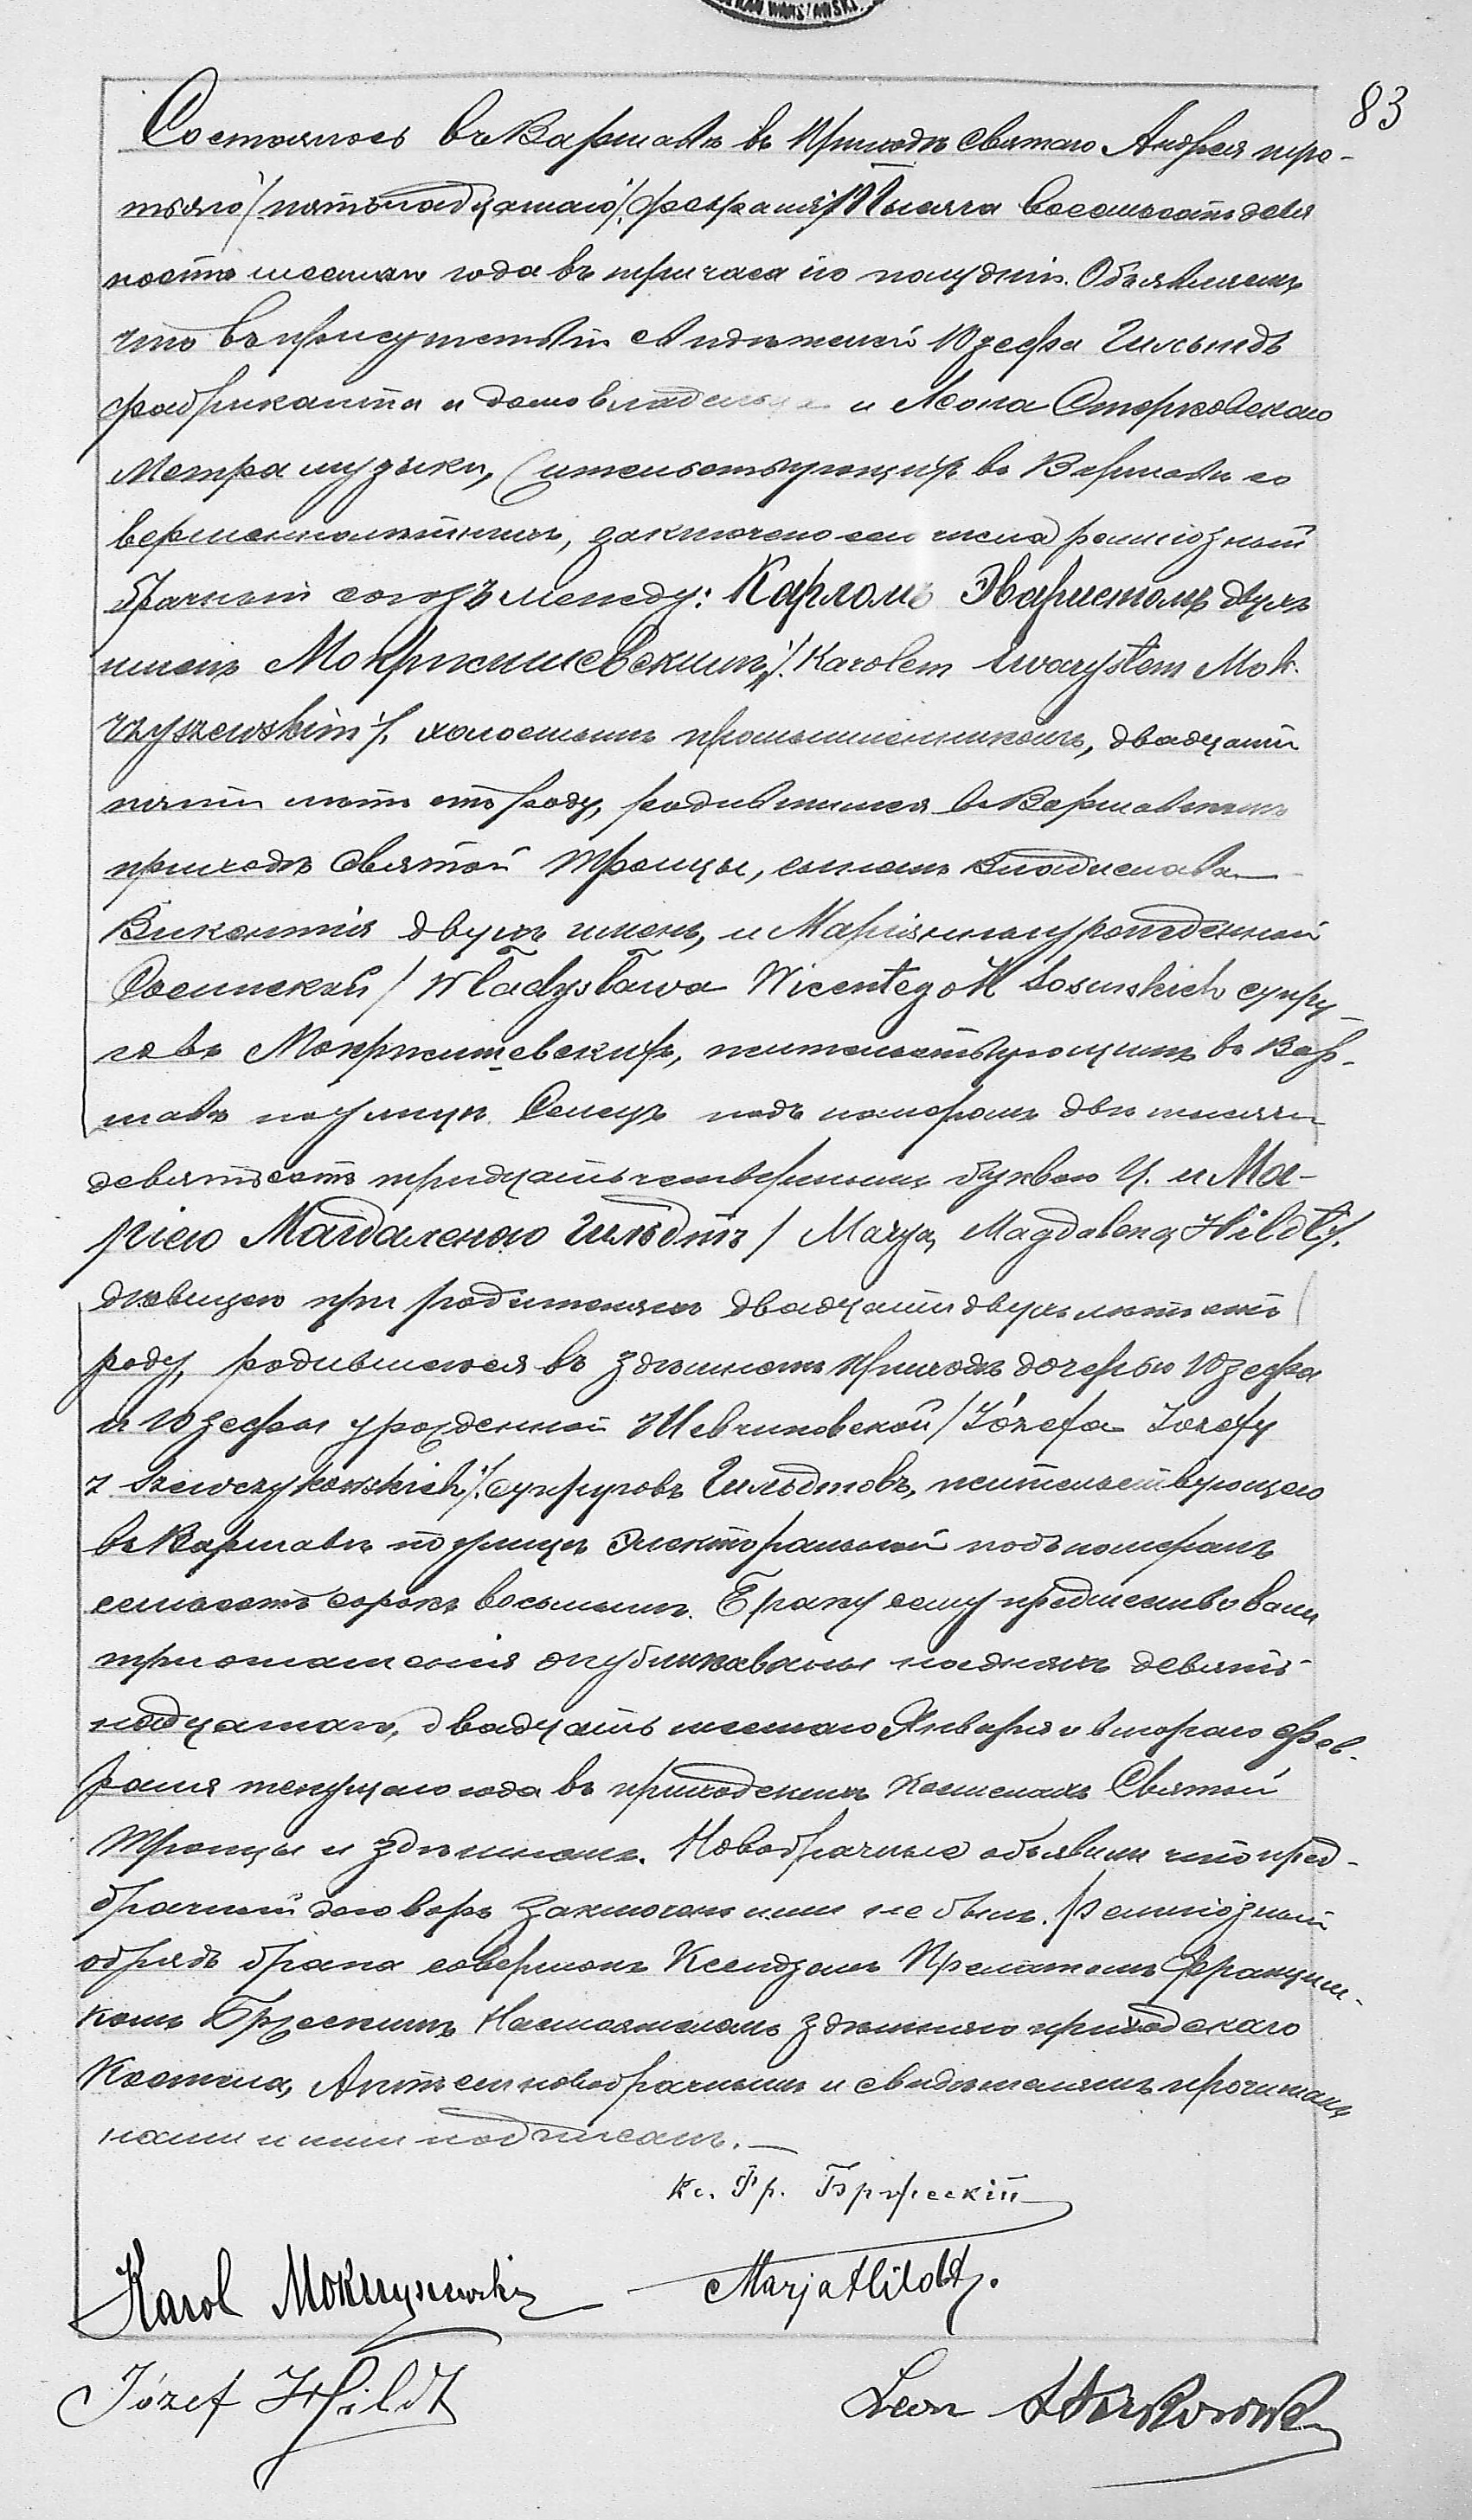 83
Состоялось въ Варшавѣ въ Приходѣ Святаго Андрея тре-
тьяго /:пятнадцатаго:/ Февраля Тысяча восемьсотъ девя
носто шестаго года въ три часа по полудни. Объявляемъ
что въ присутствіи свидѣтелей Юзефа Гильдтъ
фабриканта и домовладельца и Леона Стерковскаго
Метра музыки, жительствующихъ въ Варшавѣ со
вершеннолѣтнихъ, заключенъ сего числа религіозный
брачный союзъ между: Карломъ Эваристомъ двухъ
именъ Мокржишевскимъ /:Karolem Ewarystem Mok-
rzyszewskim:/, холостымъ промышленникомъ, двадцати
пяти лѣтъ отъ роду, родившимся въ Варшавѣ въ
приходѣ Святой Троицы, сыномъ Владислава
Викентія двухъ именъ, и Маріянны урожденной
Сосинской / Władysława Wicentego M Sosinskich супру
говъ Мокржишевскихъ, жительствующимъ въ Вар-
шавѣ по улицѣ Солецъ подъ номеромъ двѣ тысячи
девятьсотъ тридцать четвертымъ буквою Ц. и Ма-
ріею Магдаленою Гильдтъ / Maryą Magdaleną Hildt/.
дѣвицею при родителяхъ двадцати двухъ лѣтъ отъ
роду, родившеюся въ здѣшнемъ Приходѣ дочерью Юзефа
и Юзефы урожденной Шевчиковской / Józefa Jozefy
z Szewczykowskich:/ супруговъ Гильдтовъ, жительствующею
въ Варшавѣ по улицѣ Электоральной подъ номеромъ
семьсотъ сорокъ восьмымъ. Браку сему предшествовали
три оглашенія опубликованныя въ дняхъ девят-
надцатаго, двадцать шестаго Января и втораго Фев-
раля текущаго года въ приходскихъ Костелахъ Святой
Троицы и здѣшнемъ. Новобрачные объявили что пред-
брачный договоръ заключенъ ими не былъ. Религіозный
обрядъ брака совершенъ Ксендзомъ Прелатомъ Францыш-
комъ Бржескимъ Настоятелемъ здѣшняго приходскаго
Костела, Актъ сей новобрачнымъ и свидѣтелямъ прочитанъ
нами и ими подписанъ.—
Кс. Фр. Бржескій
Karol Mokrzyszewski Marja Hildt.
Józef Hildt
Leon Sterkowski